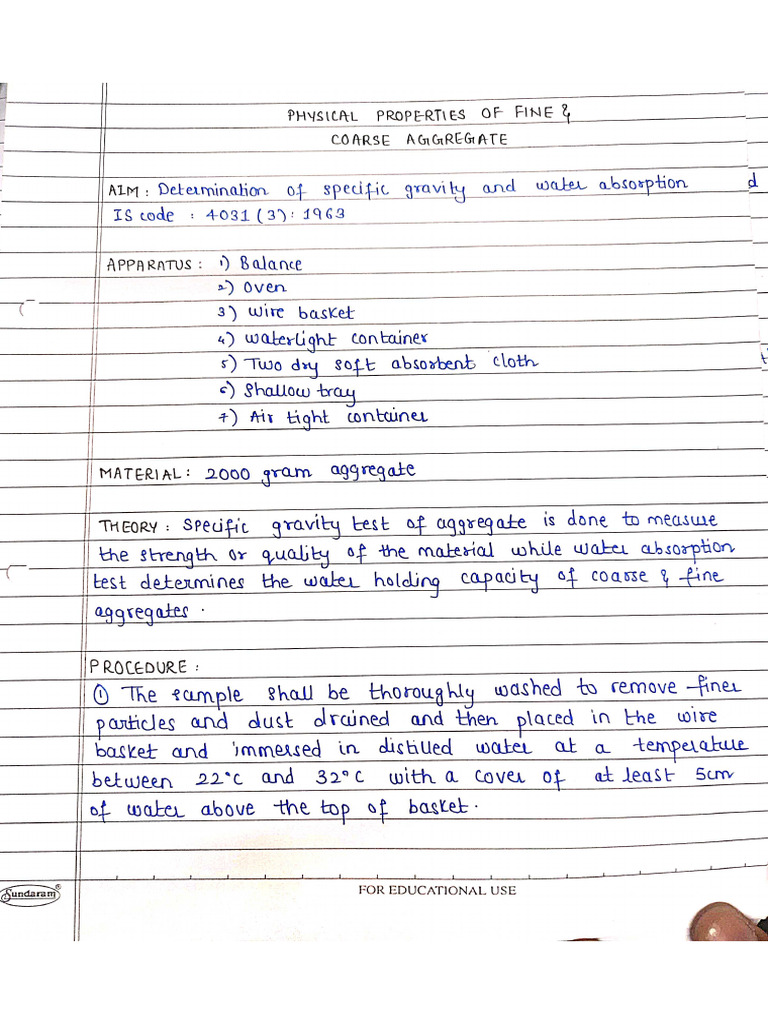 PHYSICAL PROPERTIES OF FINE &
COARSE AGGREGATE
AIM : Determination of specific gravity and water absorption
IS code : 4031 (3) : 1963
APPARATUS : 1) Balance
2) Oven
3) Wire basket
4) Watertight container
5) Two dry soft absorbent cloth
6) Shallow tray
7) Air tight container
MATERIAL : 2000 gram aggregate
THEORY : Specific gravity test of aggregate is done to measure
the strength or quality of the material while water absorption
test determines the water holding capacity of coarse & fine
aggregates .
PROCEDURE :
① The sample shall be thoroughly washed to remove finer
particles and dust drained and then placed in the wire
basket and immersed in distilled water at a temperature
between 22°C and 32°C with a cover of at least 5cm
of water above the top of basket .
Sundaram®
FOR EDUCATIONAL USE